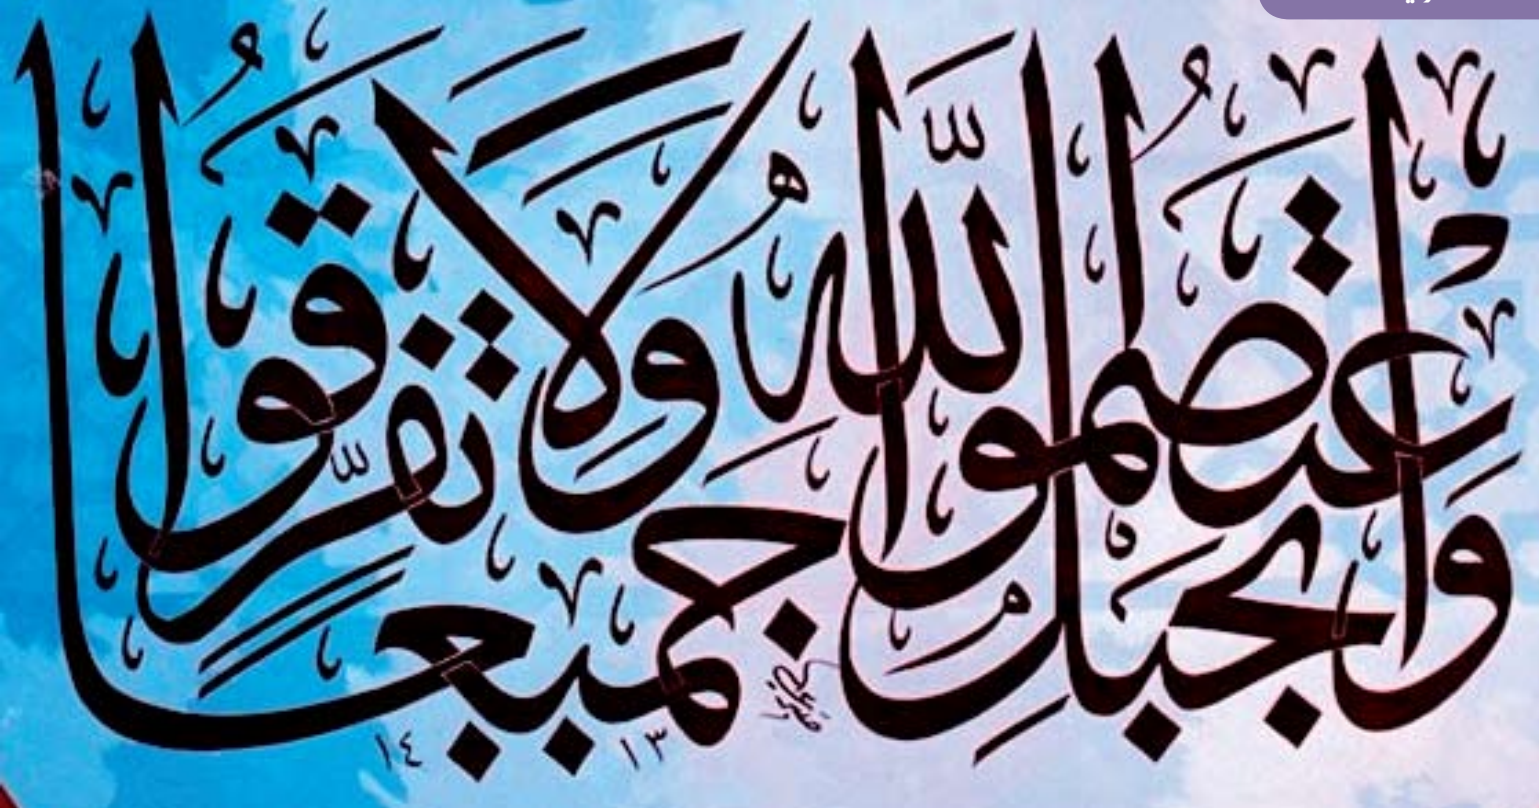 وَاعْتَصِمُوا بِحَبْلِ اللَّهِ جَمِيعًا وَلَا تَفَرَّقُوا
١٤ ١٣